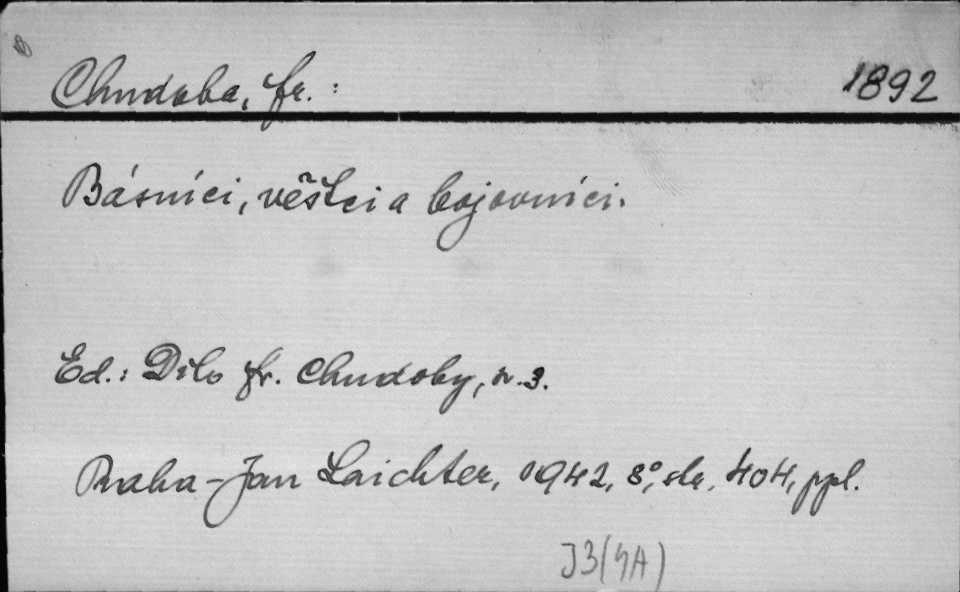 Chudoba, Fr.: 1892
Básníci, věštci a bojovníci.
Ed.: Dílo Fr. Chudoby, sv. 3.
Praha - Jan Laichter, 1942, 8°, str. 404, ppl.
J3(4A)